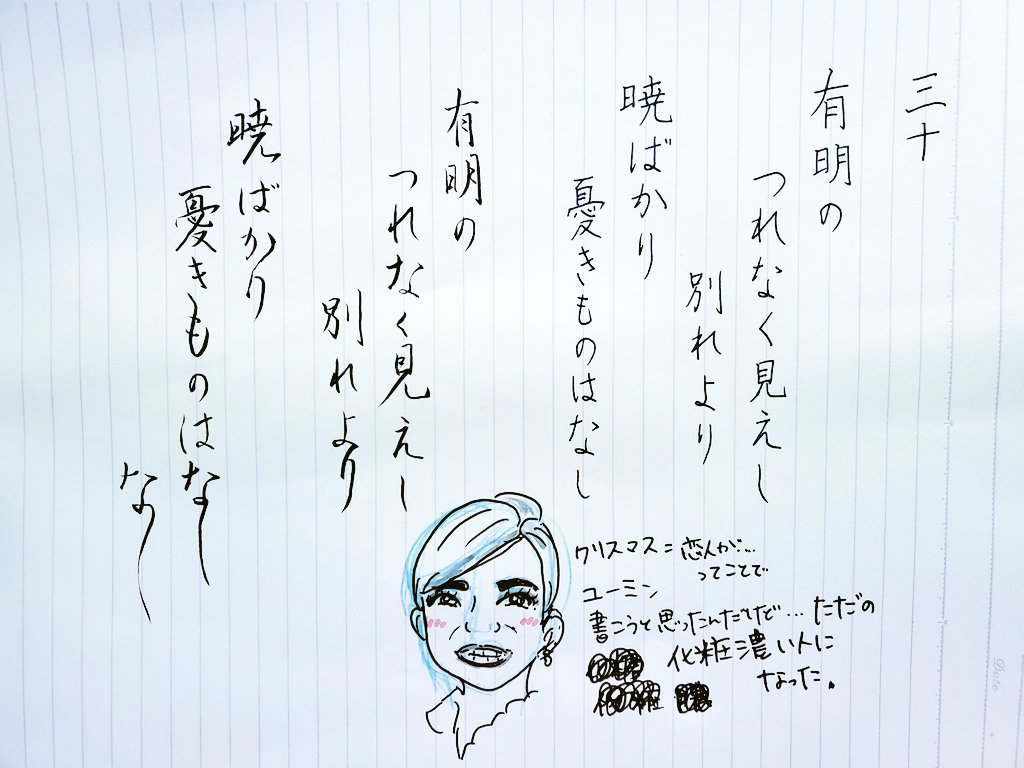 三十
有明の
つれなく見えし
別れより
暁ばかり
憂きものはなし
有明の
つれなく見えし
別れより
暁ばかり
憂きものはなし
なし
クリスマス=恋人が…
ってことで
ユーミン
書こうと思ったんだけど…ただの
化粧濃い人に
なった。